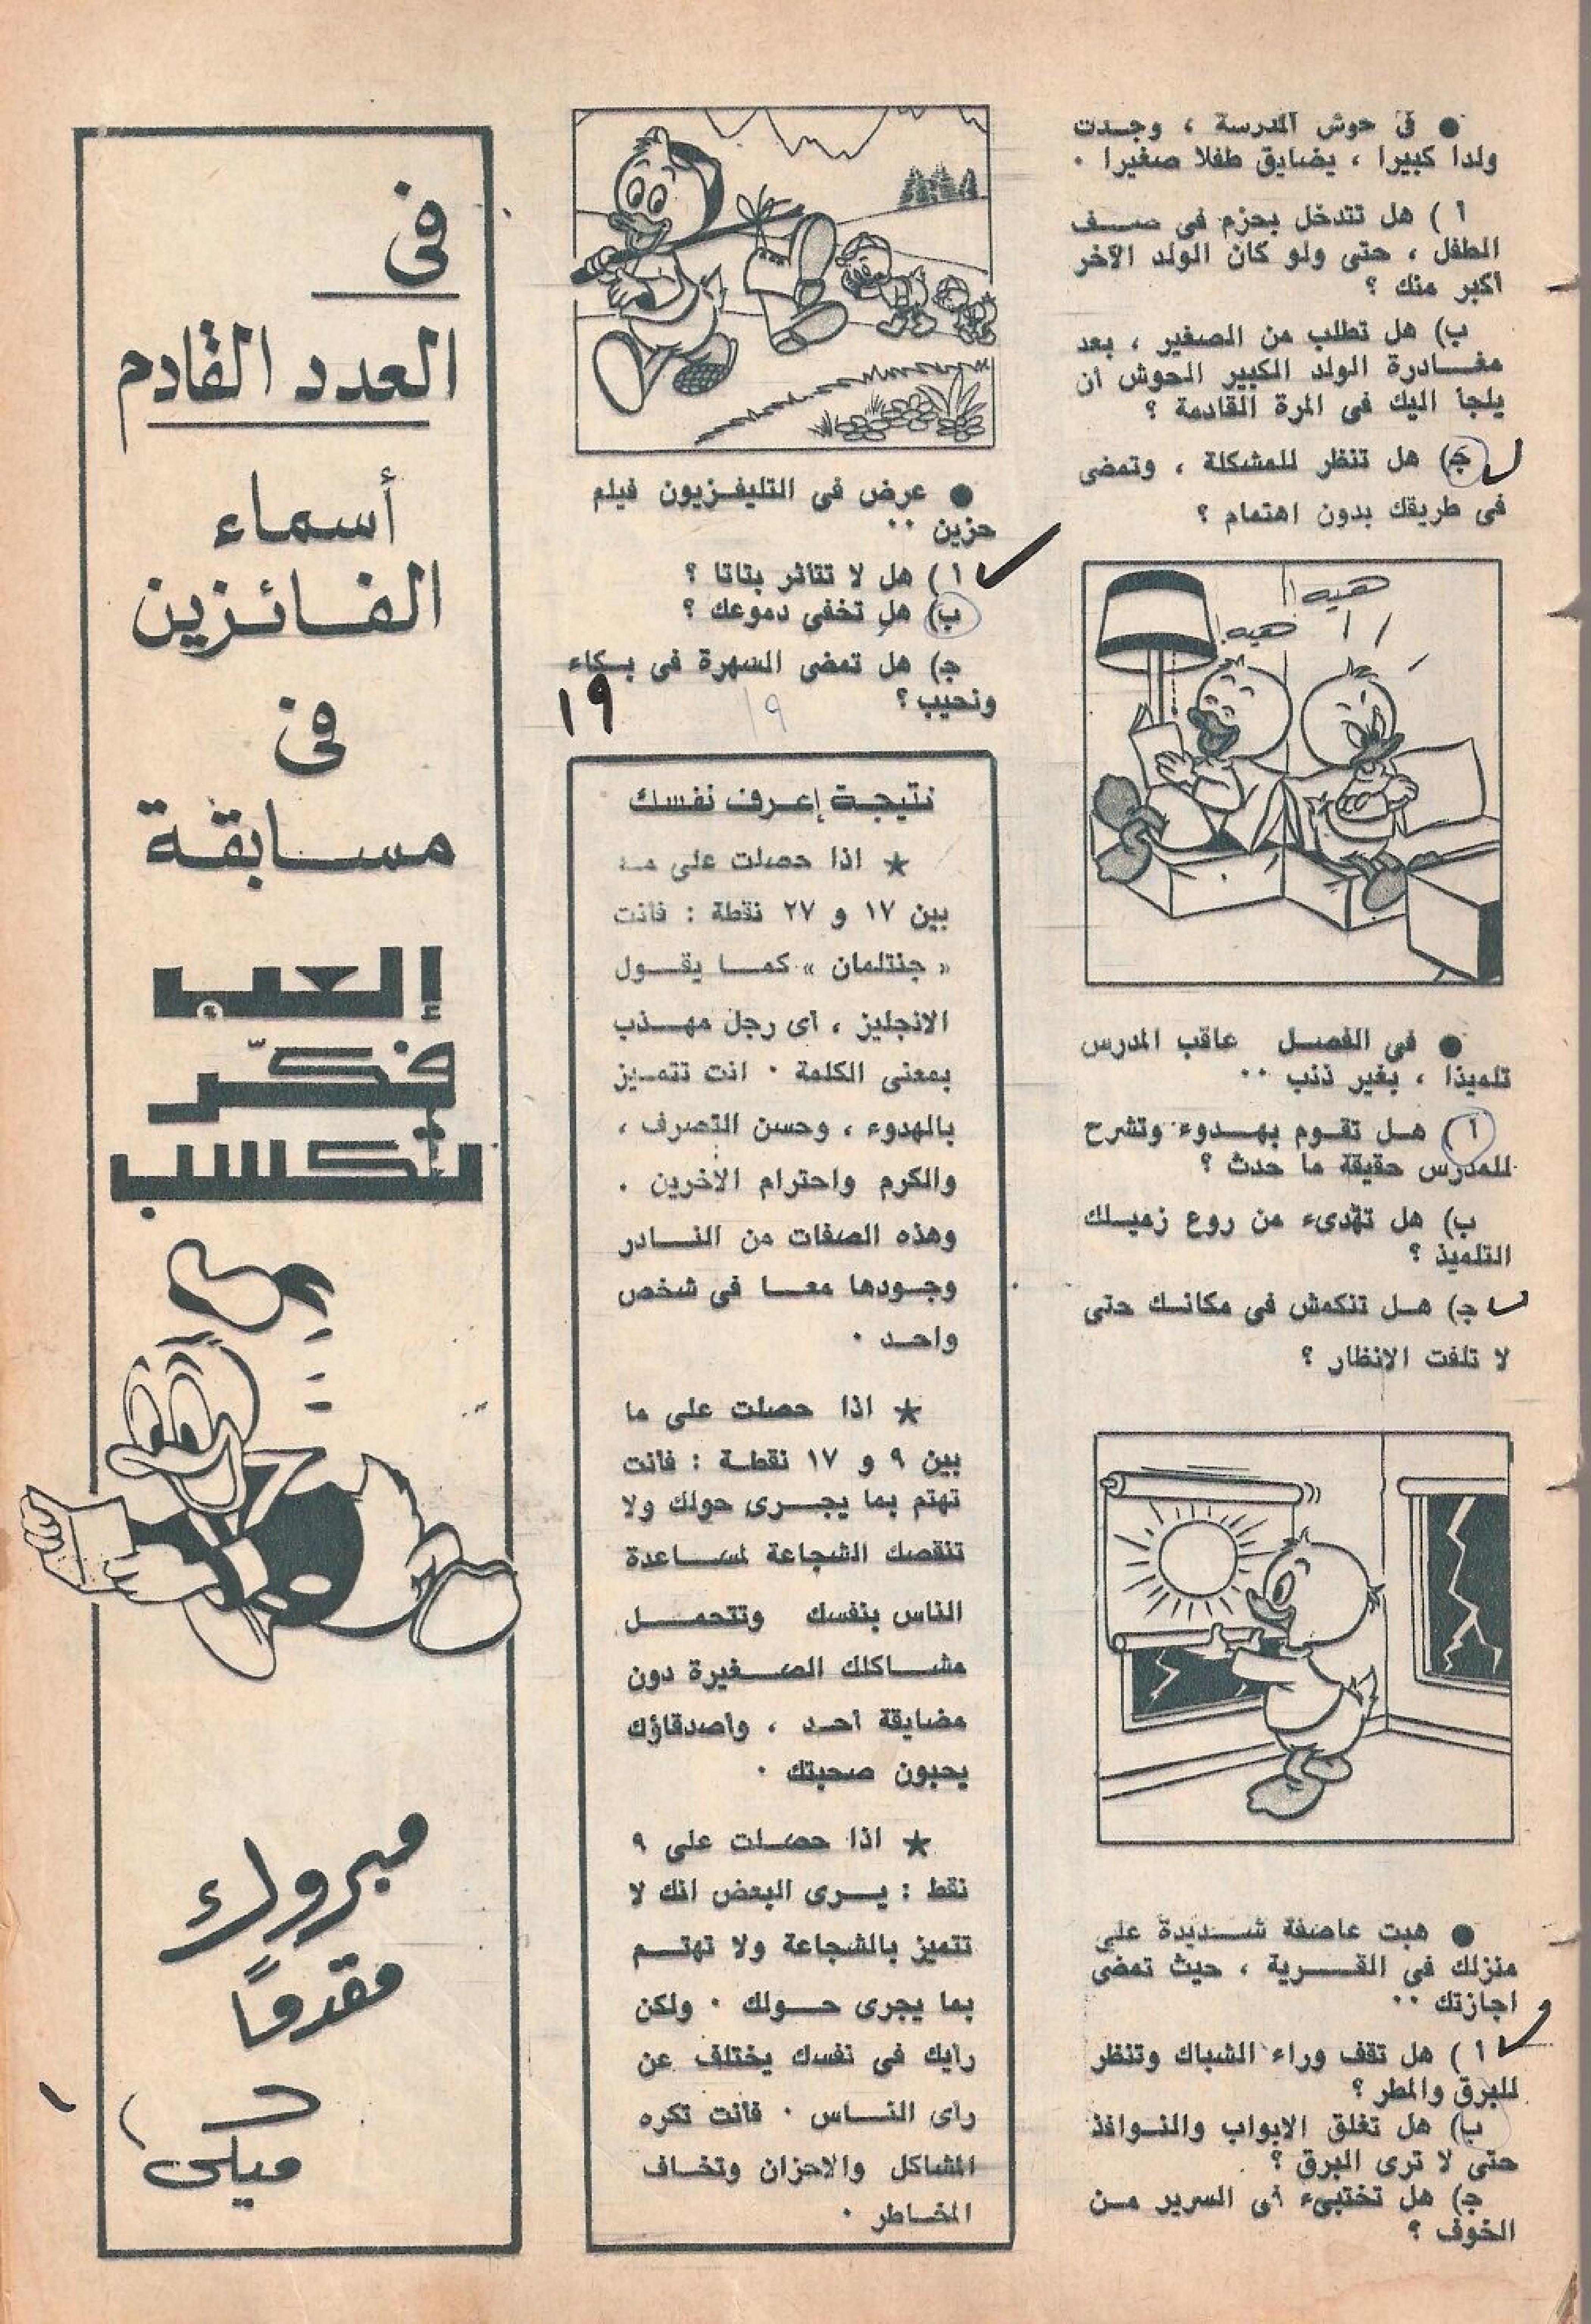 ● فى حوش المدرسة ، وجدت
ولدا كبيرا ، يضايق طفلا صغيرا .
أ ) هل تتدخل بحزم فى صف
الطفل ، حتى ولو كان الولد الآخر
أكبر منك ؟
ب) هل تطلب من الصغير ، بعد
مغادرة الولد الكبير الحوش أن
يلجأ اليك فى المرة القادمة ؟
ج) هل تنظر للمشكلة ، وتمضى
فى طريقك بدون اهتمام ؟
هيه !!
هيه !
● فى الفصل عاقب المدرس
تلميذا ، بغير ذنب ..
أ ) هل تقوم بهدوء وتشرح
للمدرس حقيقة ما حدث ؟
ب) هل تهدىء من روع زميلك
التلميذ ؟
ج) هل تنكمش فى مكانك حتى
لا تلفت الانظار ؟
● هبت عاصفة شديدة على
منزلك فى القرية ، حيث تمضى
اجازتك ..
أ ) هل تقف وراء الشباك وتنظر
للبرق والمطر ؟
ب) هل تغلق الابواب والنوافذ
حتى لا ترى البرق ؟
ج) هل تختبىء فى السرير من
الخوف ؟
● عرض فى التليفزيون فيلم
حزين ..
أ ) هل لا تتأثر بتاتا ؟
ب) هل تخفى دموعك ؟
ج) هل تمضى السهرة فى بكاء
ونحيب ؟
١٩
١٩
نتيجة إعرف نفسك
★ اذا حصلت على ما
بين ١٧ و ٢٧ نقطة : فأنت
« جنتلمان » كما يقول
الانجليز ، أى رجل مهذب
بمعنى الكلمة . انت تتميز
بالهدوء ، وحسن التصرف ،
والكرم واحترام الآخرين .
وهذه الصفات من النادر
وجودها معا فى شخص
واحد .
★ اذا حصلت على ما
بين ٩ و ١٧ نقطة : فأنت
تهتم بما يجرى حولك ولا
تنقصك الشجاعة لمساعدة
الناس بنفسك وتتحمل
مشاكلك الصغيرة دون
مضايقة أحد ، وأصدقاؤك
يحبون صحبتك .
★ اذا حصلت على ٩
نقط : يرى البعض انك لا
تتميز بالشجاعة ولا تهتم
بما يجرى حولك . ولكن
رأيك فى نفسك يختلف عن
رأى الناس . فأنت تكره
المشاكل والاحزان وتخاف
المخاطر .
فى
العدد القادم
أسماء
الفائزين
فى
مسابقة
إلعب
فكّر
تكسب
مبروك
مقدماً
ميكى